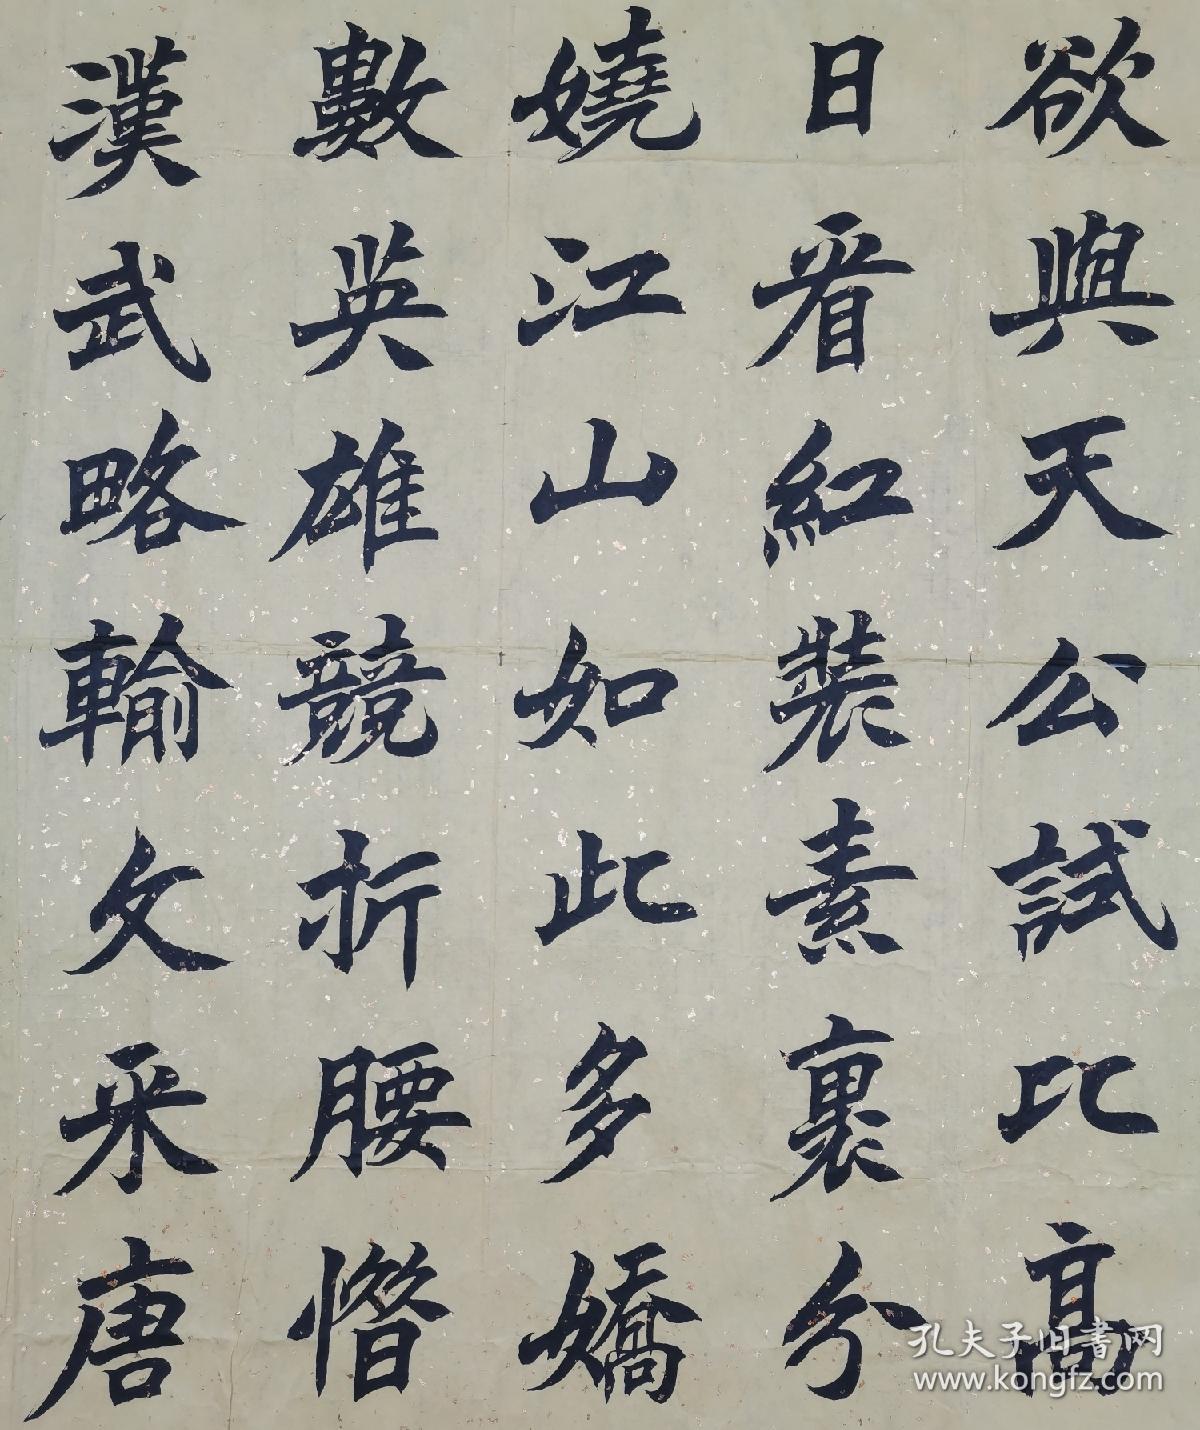 欲與天公試比高
日看紅裝素裹分
嬈江山如此多嬌
數英雄競折腰惜
漢武略輸文采唐
孔夫子旧书网
www.kongfz.com